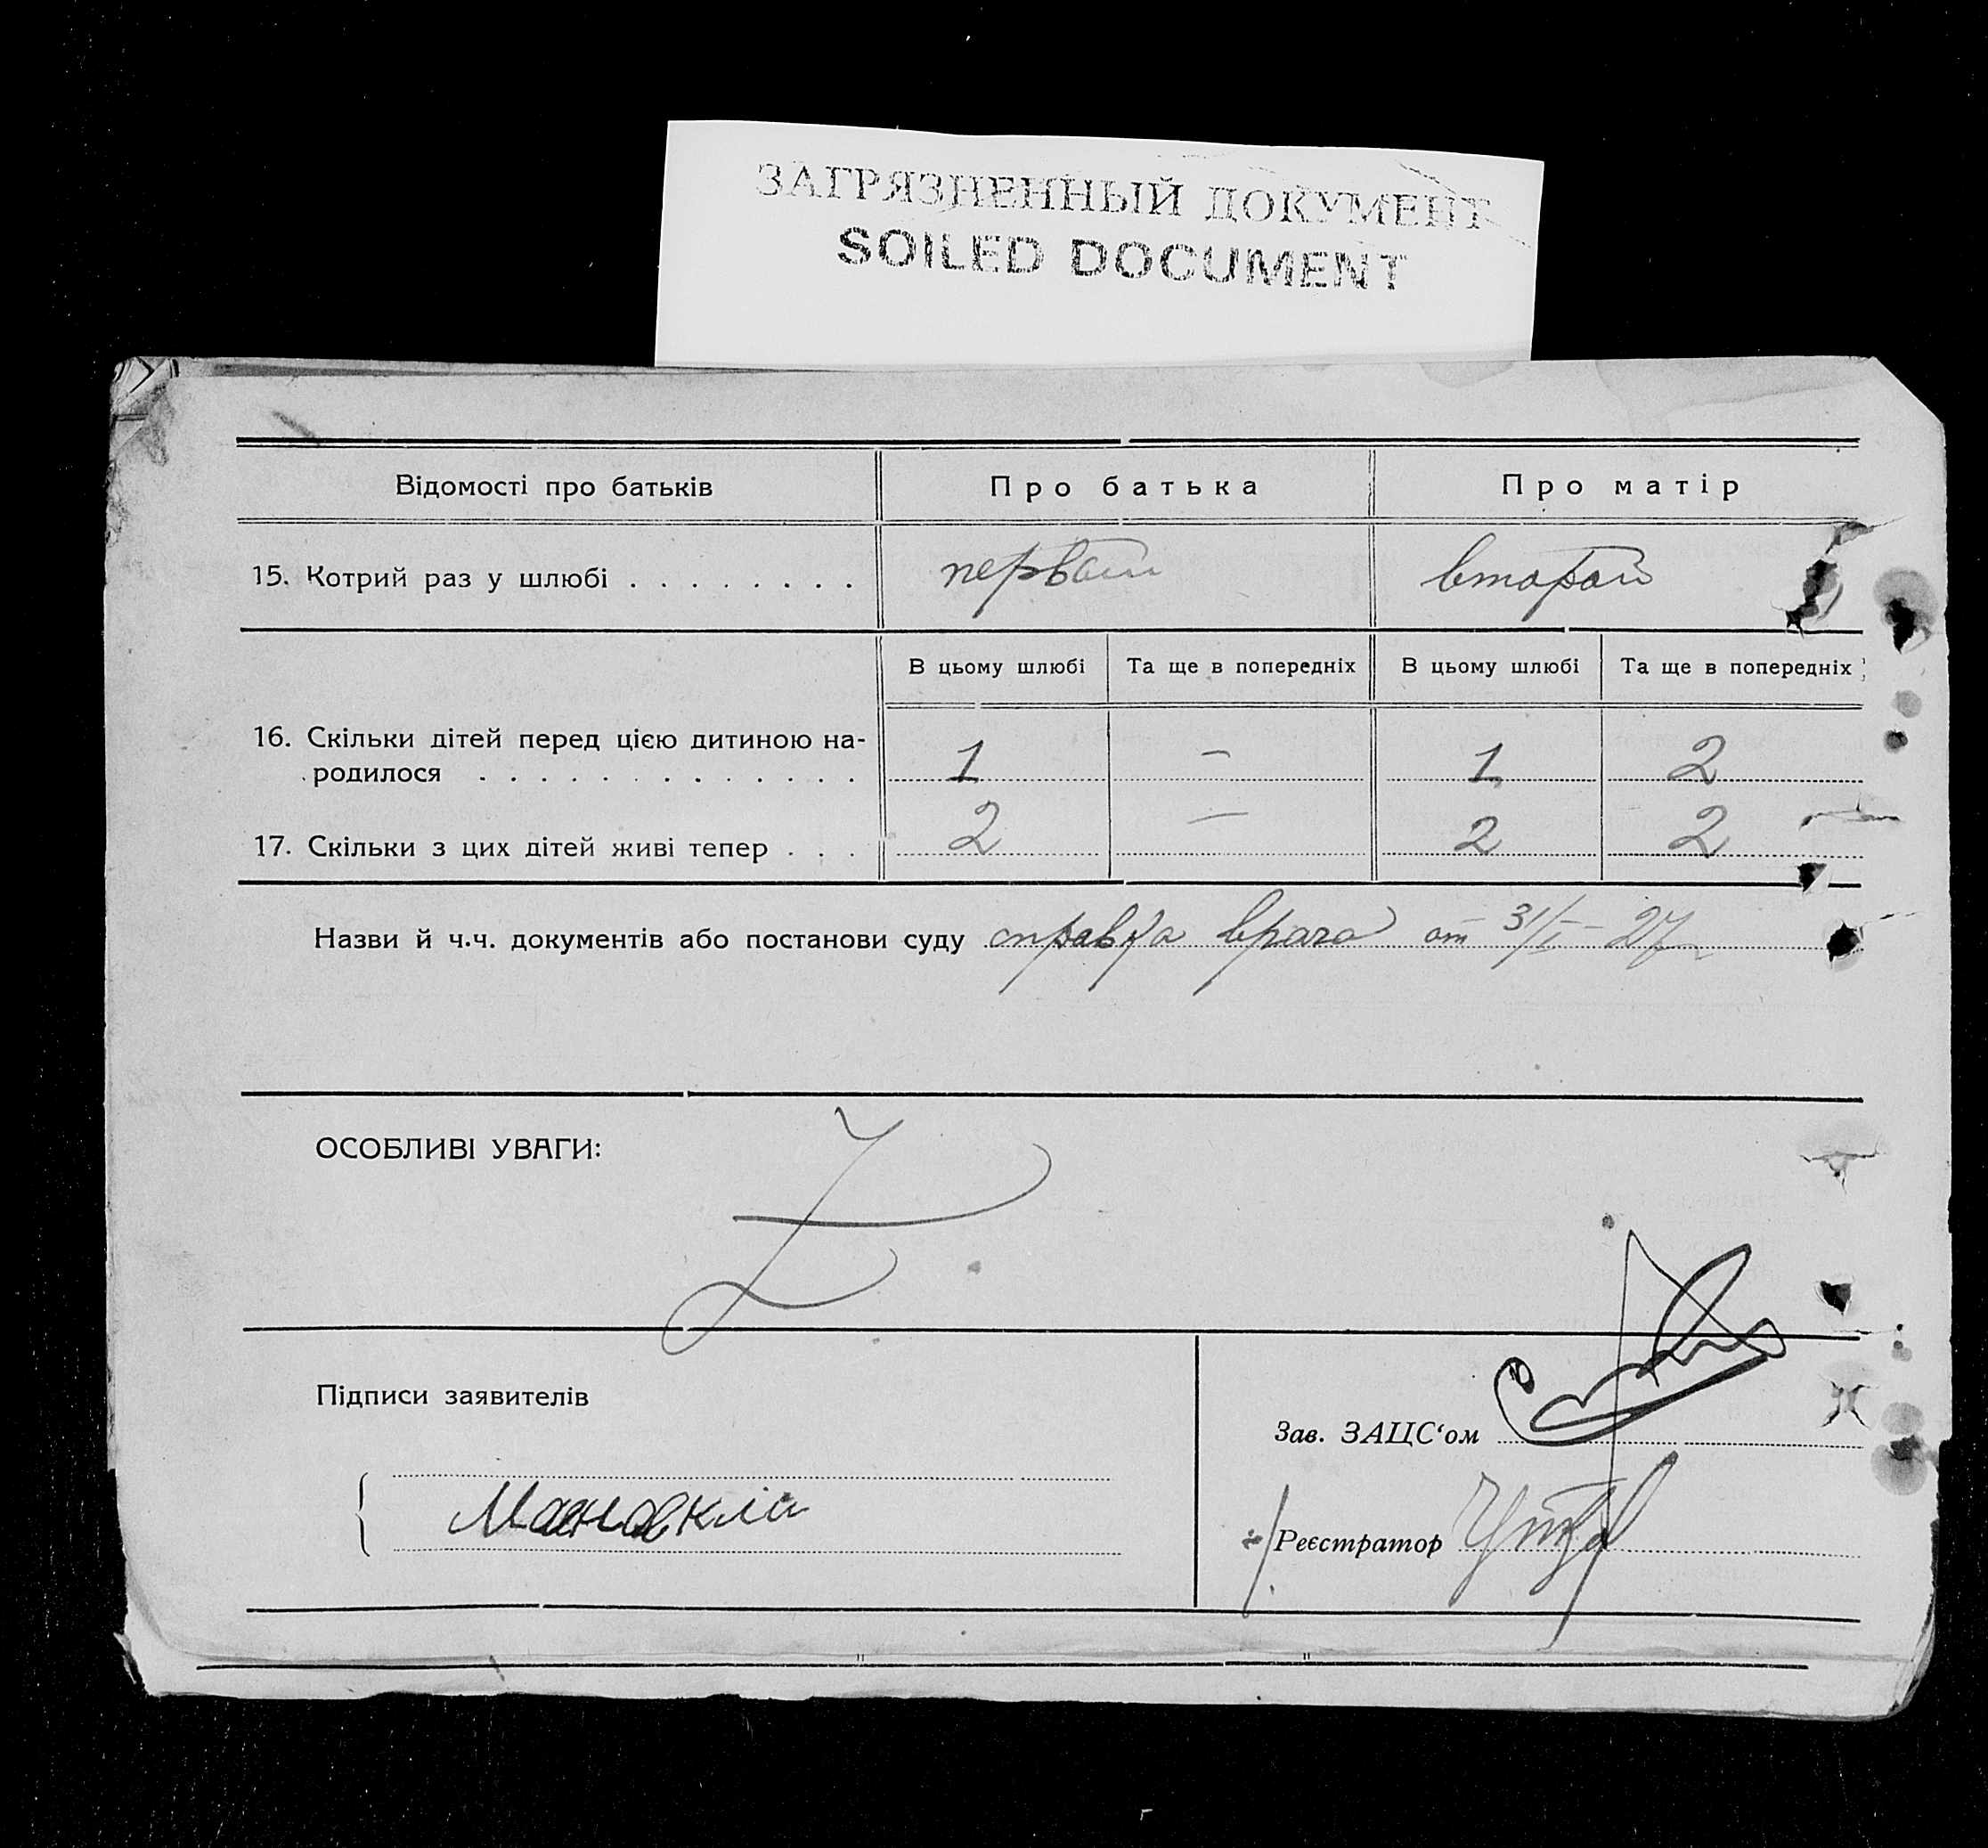 ЗАГРЯЗНЕННЫЙ ДОКУМЕНТ
SOILED DOCUMENT
Відомості про батьків Про батька Про матір
15. Котрий раз у шлюбі . . . . . . . . первый второй
В цьому шлюбі Та ще в попередніх В цьому шлюбі Та ще в попередніх
16. Скільки дітей перед цією дитиною на-
родилося . . . . . . . . . . . . . 1 – 1 2
17. Скільки з цих дітей живі тепер . . . 2 – 2 2
Назви й ч.ч. документів або постанови суду справка врача от 31/I – 27
ОСОБЛИВІ УВАГИ:
Підписи заявителів
Зав. ЗАЦС‘ом
Манакли
Реєстратор